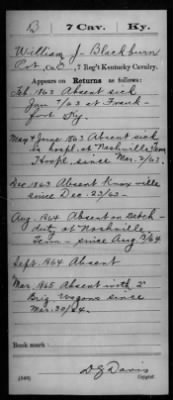 B 7 Cav. Ky.
William J. Blackburn
Pvt, Co. 7 Reg't Kentucky Cavalry.
Appears on Returns as follows:
Feb. 1863 Absent sick
Jan 7/63 at Frank-
fort Ky.
May & June 1863 Absent sick
in hospl. at Nashville Tenn
Hospl. since Mar. 2/63.
Dec 1863 Absent Knoxville
since Dec. 23/63.
Aug. 1864 Absent on Detch-
duty at Nashville
Tenn - since Aug 13/64
Sept. 1864 Absent
Mar. 1865 Absent with 2"
Brig Wagons since
Mar. 20/64.
Book mark:
D. G. Davis
(546) Copyist.